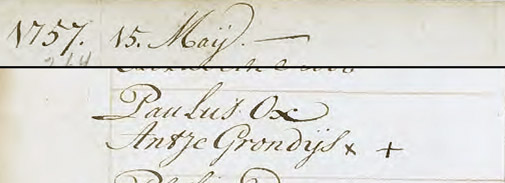 1757. 15. Maij. —
Paulus Ox
Antje Grondijs x +